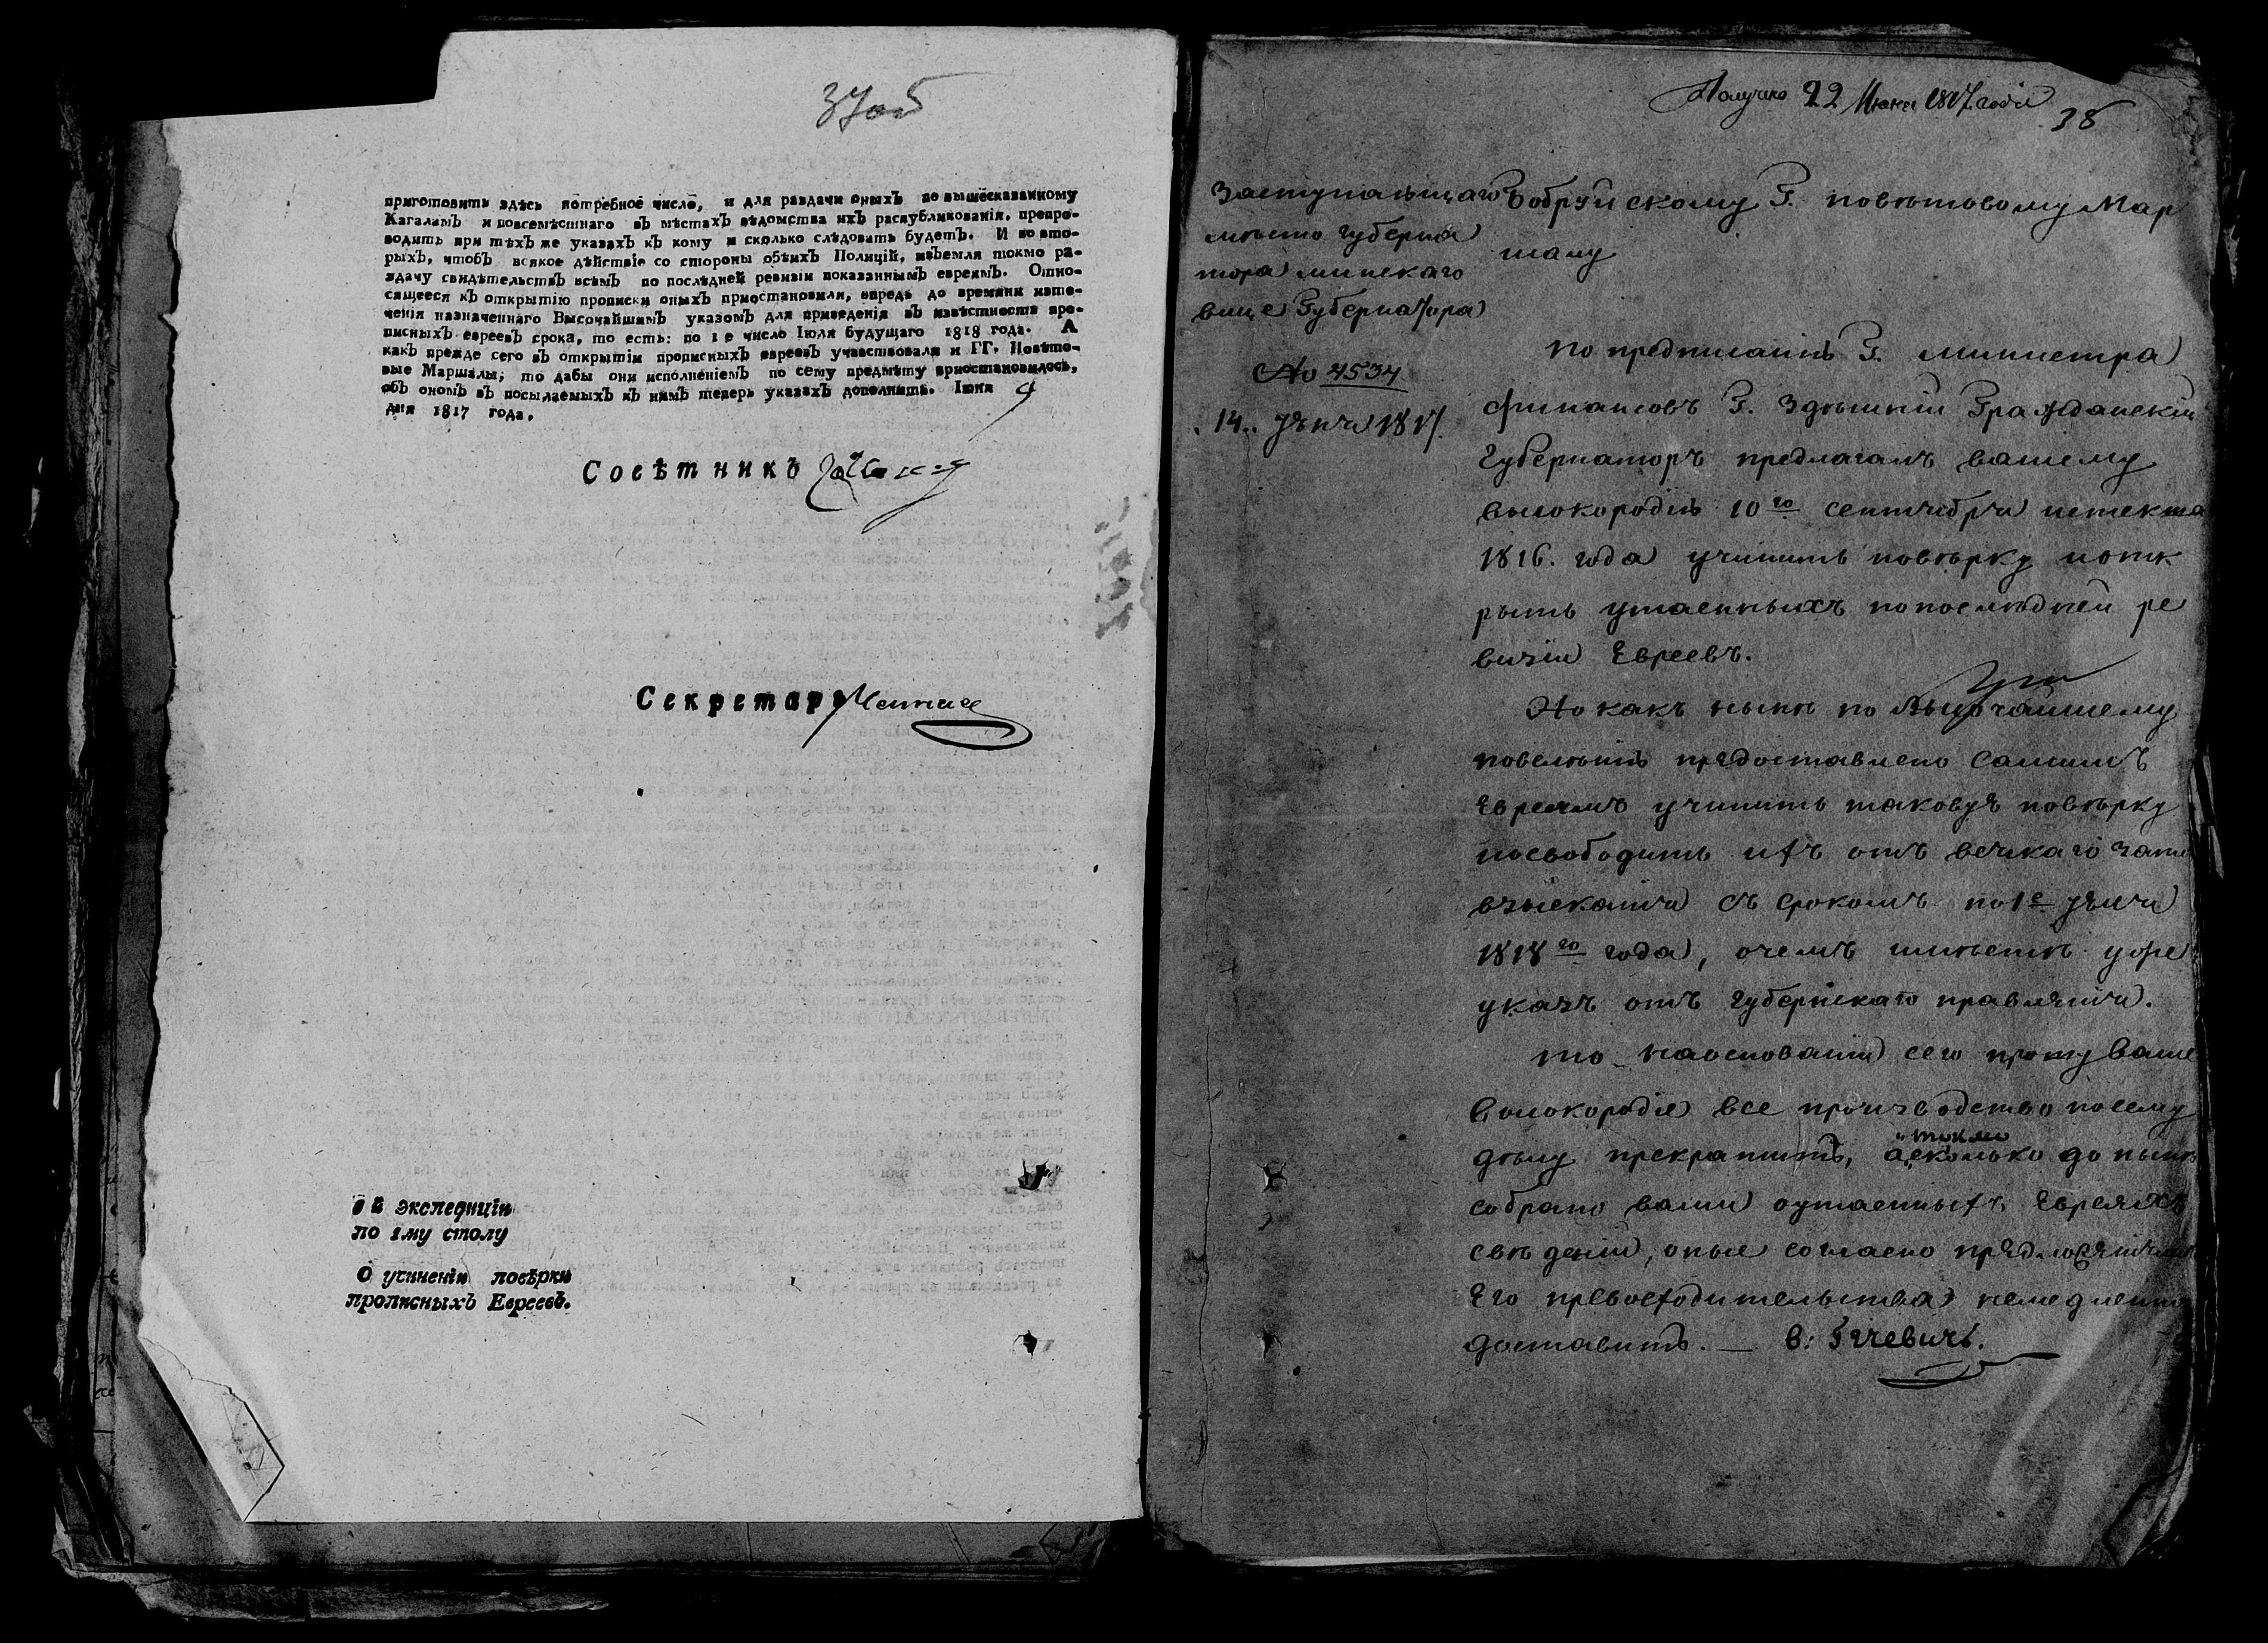 37об
приготовить здѣсь потребное число, и для раздачи оныхЪ по вышесказанному
КагаламЪ и повсемѣстнаго вЪ мѣстахЪ вѣдомства ихЪ распубликованія, препро-
водить при тѣхЪ же указахЪ кЪ кому и сколько слѣдовать будетЪ. И во вто-
рыхЪ, чтобЪ всякое дѣйствіе со стороны обѣихЪ Полицій, изЪемля токмо ра-
здачу свидѣтельствЪ всѣмЪ по послѣдней ревизіи показаннымЪ евреямЪ. Отно-
сящееся кЪ открытію прописки оныхЪ приостановили, впредь до времяни исте-
ченія назначеннаго ВысочайшимЪ указомЪ для приведенія вЪ извѣстность про-
писныхЪ евреевЪ срока, то есть: по 1 е число Іюля будущаго 1818 года. А
какЪ прежде сего вЪ открытіи прописныхЪ евреевЪ участвовали и ГГ. Повѣто-
вые Маршалы; то дабы они исполненіемЪ по сему предмѣту приостановилось,
обЪ ономЪ вЪ посылаемыхЪ кЪ нимЪ теперь указахЪ дополнить. Іюня 9
дня 1817 года.
СовѣтникЪ
Секретарь
й экспедиціи
по 1му столу
О учиненіи повѣрки
прописныхЪ ЕвреевЪ.
Получено 22 Июня 1817 года
38
Заступающаго
мѣсто губерна
тора минскаго
вице Губернатора
No 4534
14. Юня 1817.
Бобруйскому Г. повѣтовому Мар
шалу
По предписанію Г. министра
финансовъ Г. Здѣшній Гражданскій
Губернаторъ предлагалъ вашему
высокородію 10го сентября истекша
1816. года учинить повѣрку и отк
рыть утаенныхъ по последней ре
визіи Евреевъ.
Но какъ нынѣ по Высочайшему
повелѣнію предоставлено самимъ
Евреямъ учинить таковую повѣрку
и освободить ихъ отъ всякаго за то
взысканія съ срокомъ по 1е юля
1818го года, о чемъ имѣете уже
указъ отъ Губернскаго правленія.
то на основаніи сего прошу ваше
высокородіе все производство по сему
дѣлу прекратить, а сколько до нынѣ
токмо
собрано вами о утаенныхъ Евреяхъ
свѣденій, оные согласно предложенію
Его превосходительства немедленно
доставить. —